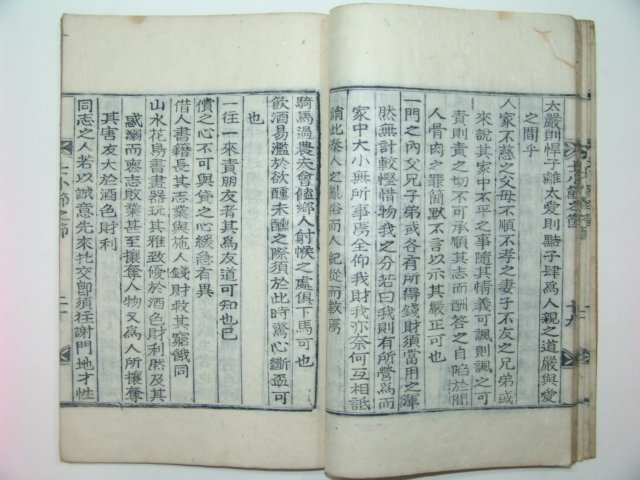 太嚴則悍子離太愛則黠子肆爲人親之道嚴與愛
之間乎
人家不慈之父母不順不孝之妻子不友之兄弟或
來說其家中不平之事隨其情義可諷則諷之可
責則責之不可承順其志而酬答之自陷於間
人骨肉之罪簡默不言以示其嚴正可也
一門之內父兄子弟或各有所得錢財須當用之渾
然無計較慳惜物我之分若曰我則有所營爲而
家中大小無所事爲全仰我財我亦奈何互相詆
謂此秦人之亂俗而人紀從而斁
騎馬過農夫會饁鄉人射帿之處俱下馬可也
飮酒易濫於欲醺未醺之際須於此時驚心斷盃可
也
一往一來責朋友者其爲友道可知也已
債之心不可與貸之心緩急有異
借人書籍長其志業與施人錢財救其窮餓同
山水花鳥書畫器玩其雅致優於酒色財利然及其
惑溺而喪志敗業甚至攘奪人物又爲人所攘奪
其害友大於酒色財利
同志之人若以誠意先來托交卽須往謝門地才性
士小節之節
二十